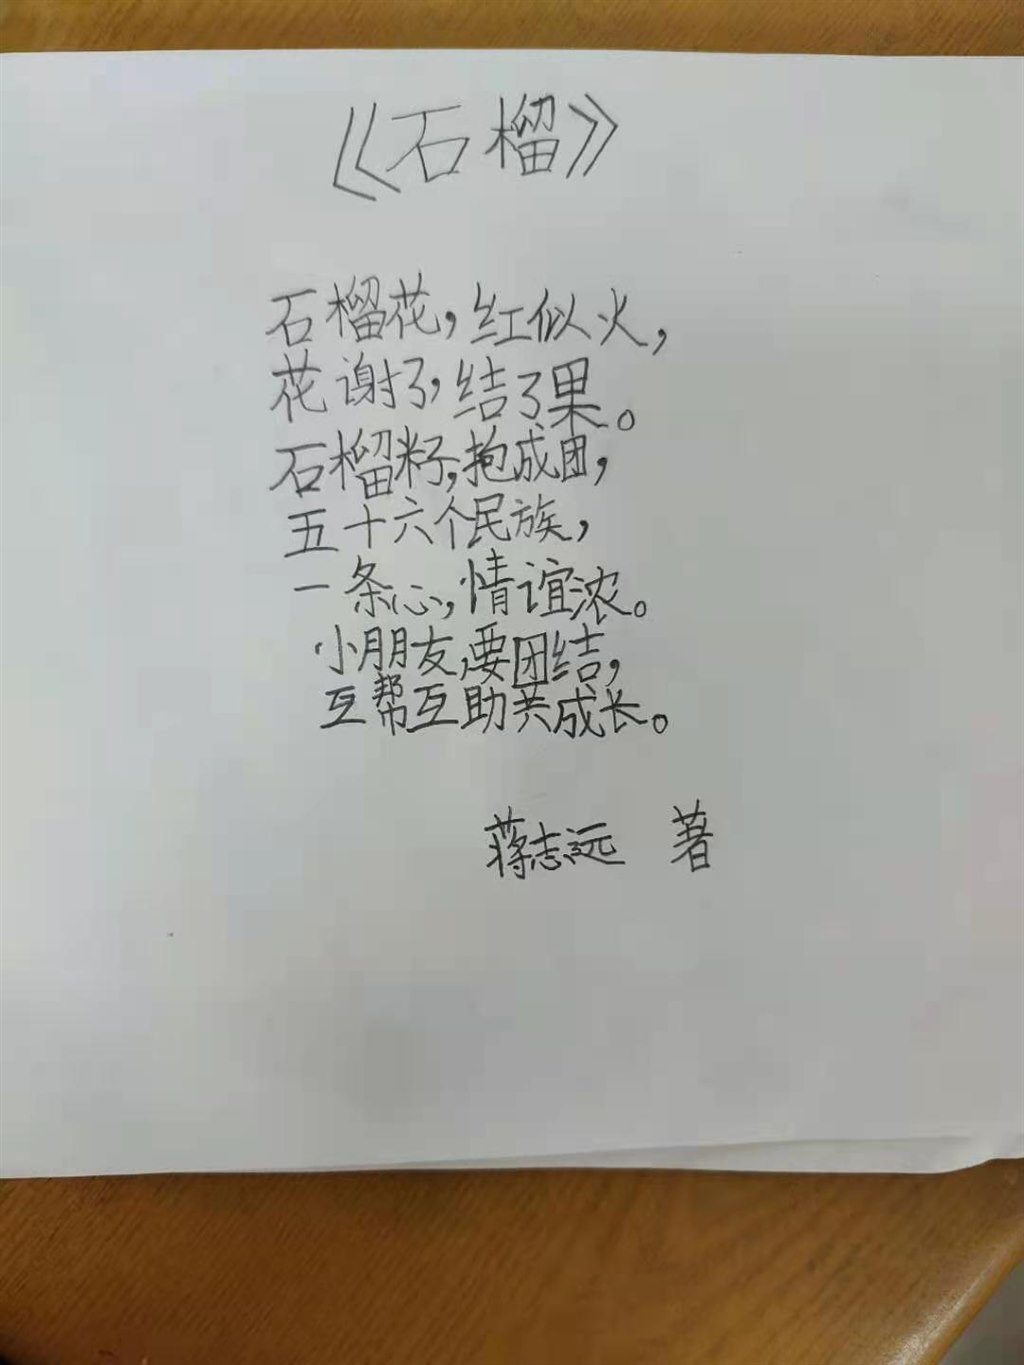 《石榴》
石榴花，红似火，
花谢了，结了果。
石榴籽，抱成团，
五十六个民族，
一条心，情谊浓。
小朋友，要团结，
互帮互助共成长。
蒋志远 著